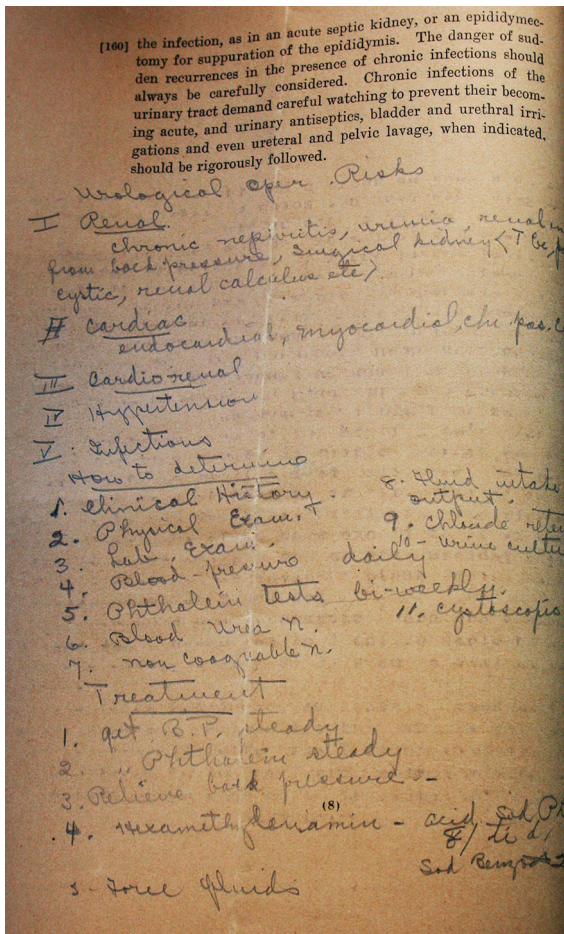 [160] the infection, as in an acute septic kidney, or an epididymec-
tomy for suppuration of the epididymis. The danger of sud-
den recurrences in the presence of chronic infections should
always be carefully considered. Chronic infections of the
urinary tract demand careful watching to prevent their becom-
ing acute, and urinary antiseptics, bladder and urethral irri-
gations and even ureteral and pelvic lavage, when indicated,
should be rigorously followed.
Urological oper. Risks
I Renal.
chronic nephritis, uremia, renal
from back pressure, Surgical kidney (T bc,
cystic, renal calculus etc)
II Cardiac
endocardial, myocardial, chr. pas.
III Cardio-renal
IV Hypertension
V. Infections
How to determine
1. Clinical History.
2. Physical Exam. +
3. Lab. Exam.
4. Blood-pressure daily
5. Phthalein tests bi-weekly.
6. Blood Urea N.
7. non coaguable N.
8. Fluid intake
output.
9. Chloride
10- Urine
11. Cystoscopic
Treatment
1. get B.P. steady
2. " Phthalein steady
3. Relieve back pressure -
(8)
4. Hexamethylenamin - acid Sod. Ph
Sod
5- Force fluids